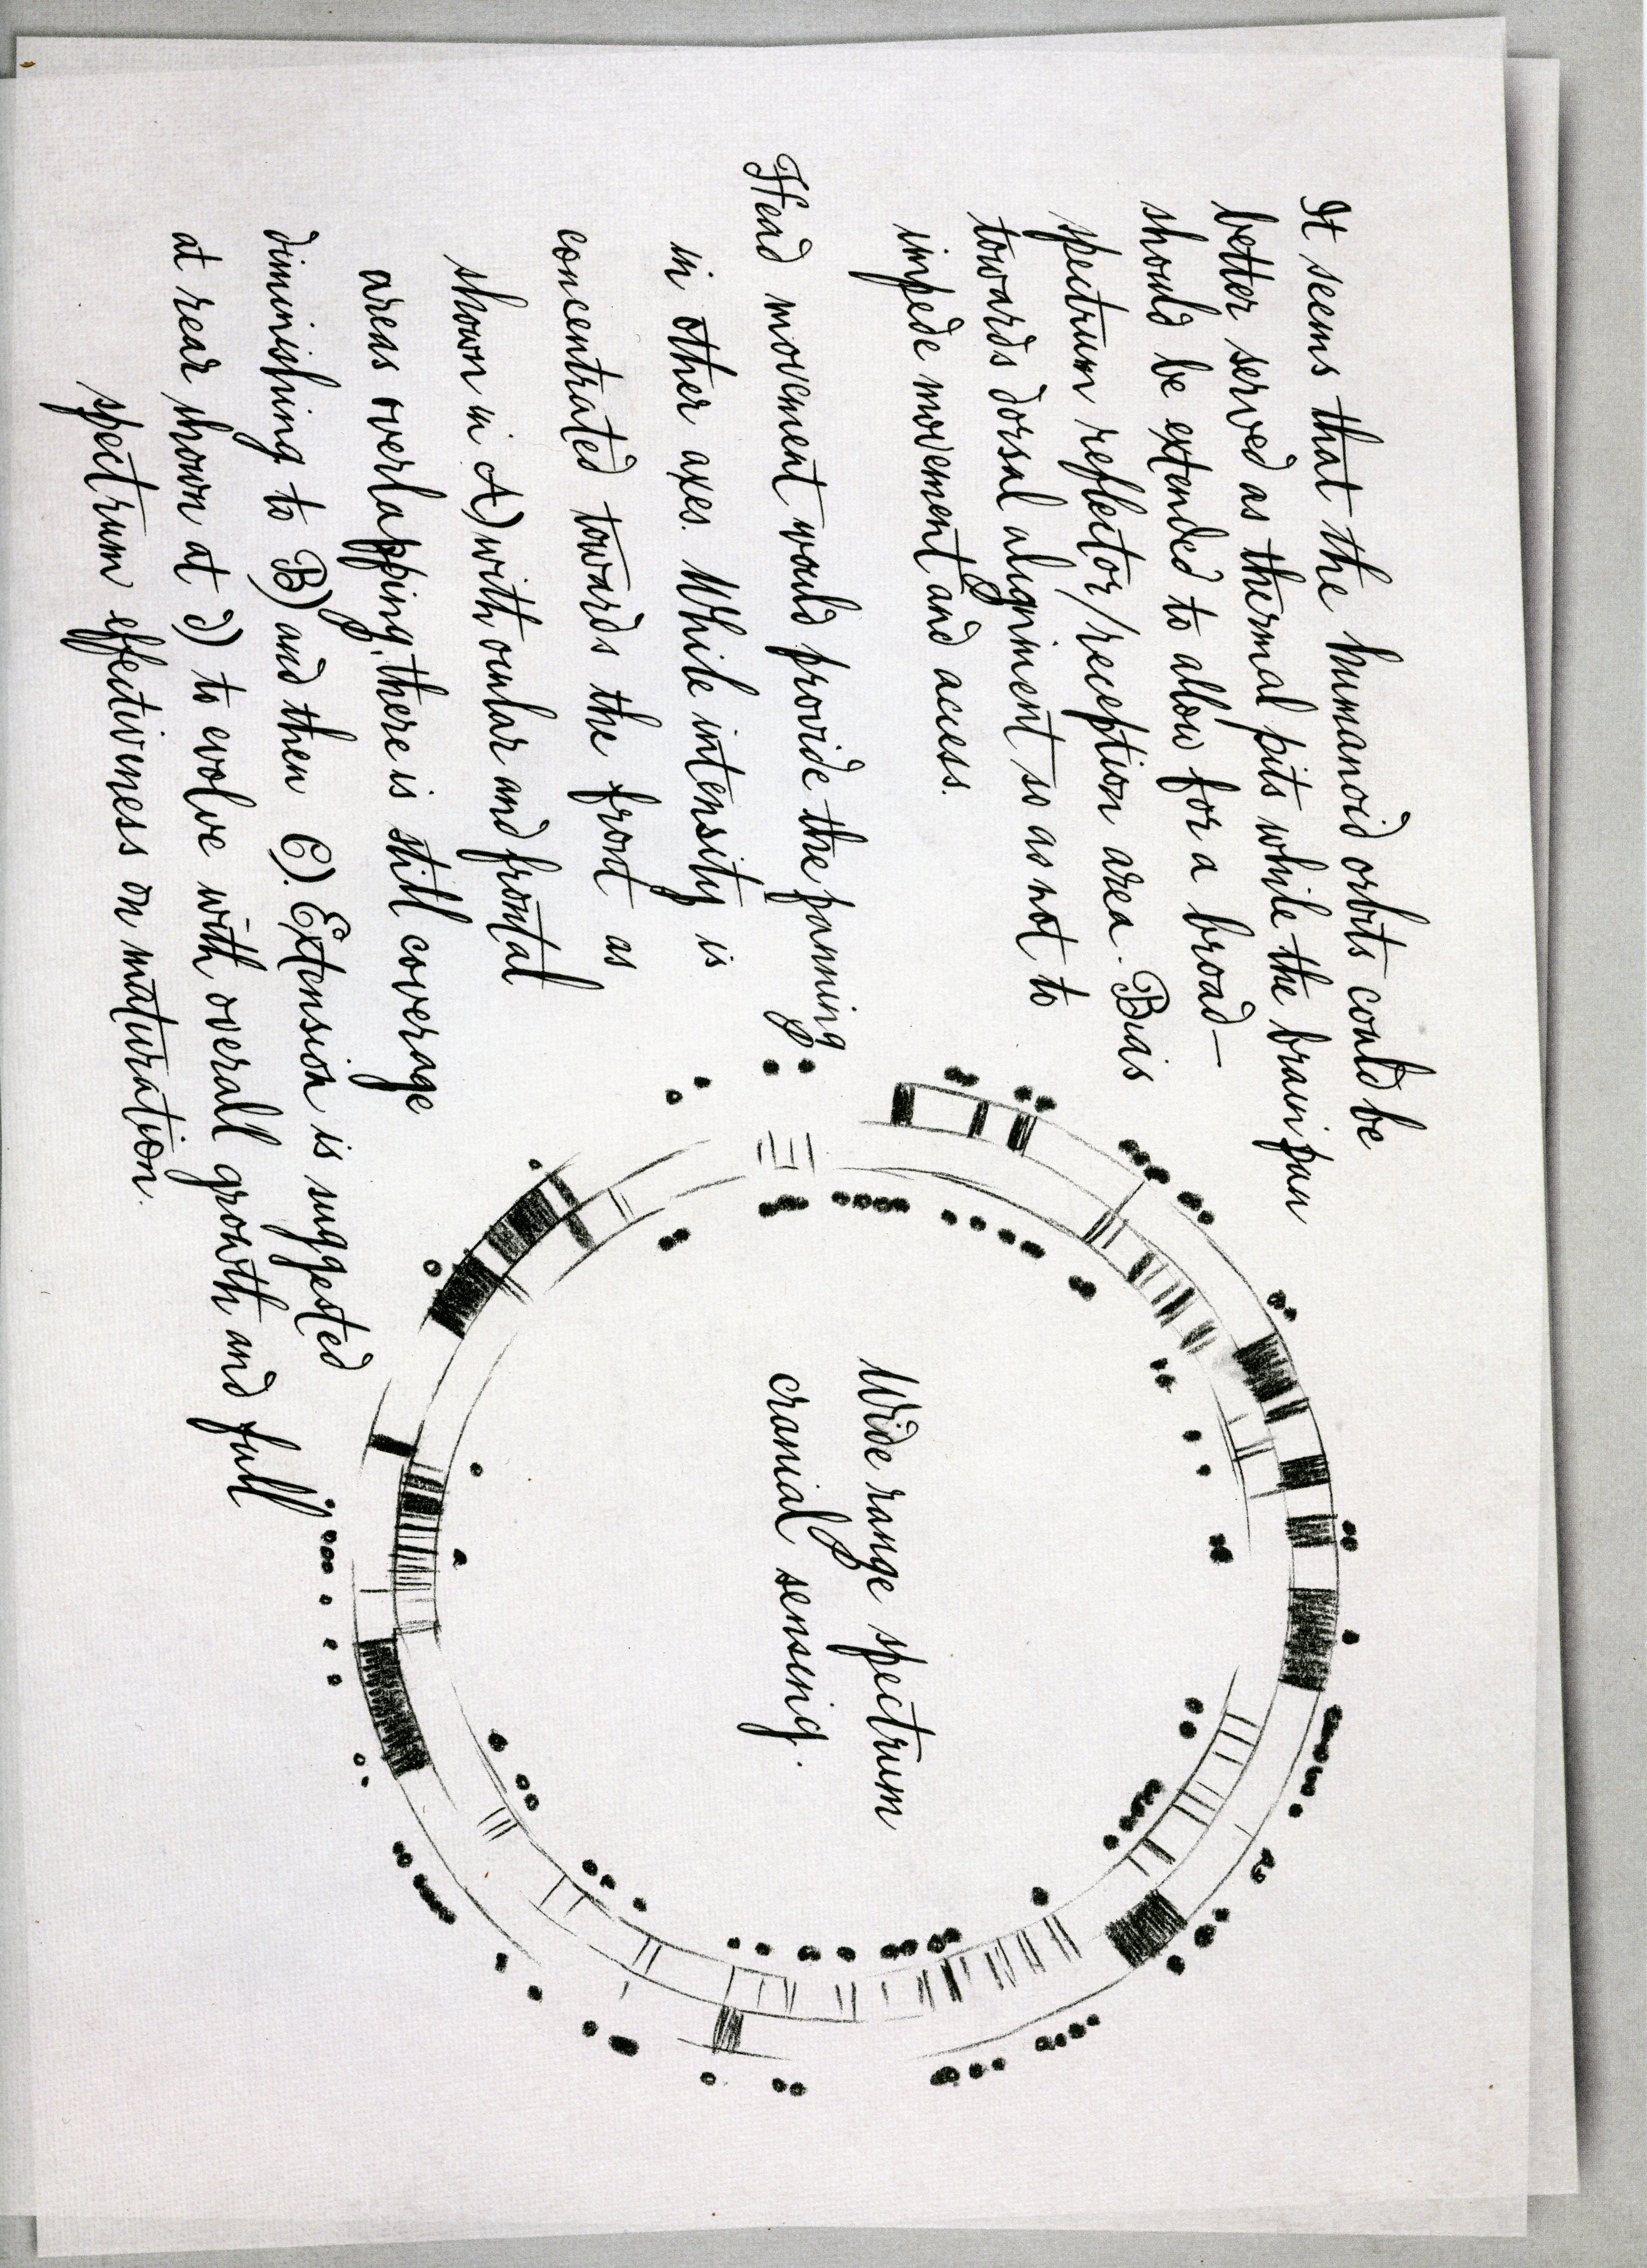 It seems that the humanoid orbits could be
better served as thermal pits while the brain pan
should be extended to allow for a broad-
spectrum reflector/reception area. Bias
towards dorsal alignment so as not to
impede movement and access.
Head movement would provide the panning
in other axes. While intensity is
concentrated towards the front as
shown in A) with oular and frontal
areas overlapping, there is still coverage
diminishing to B) and then C). Extension is suggested
at rear shown at d) to evolve with overall growth and full
spectrum effectiveness on maturation.
Wide range spectrum
cranial sensing.